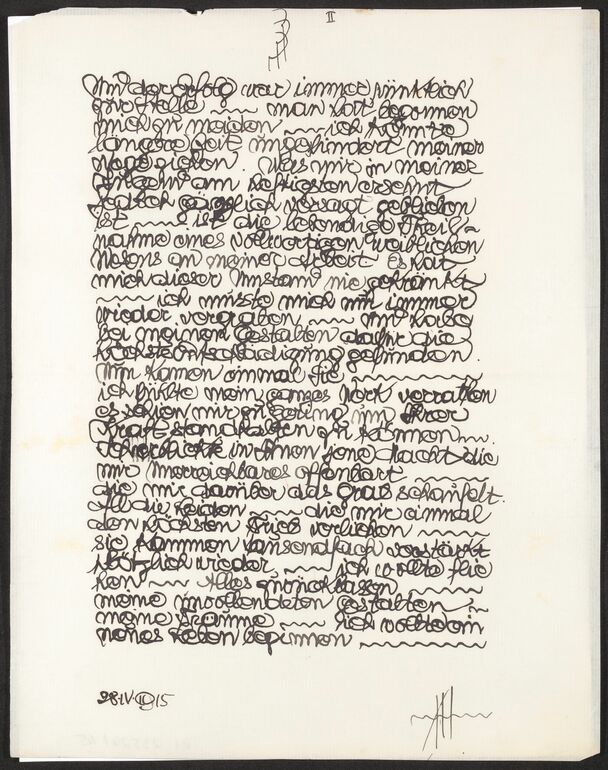 II
Und der Erfolg war immer pünktlich
zur Stelle — man hat begonnen
mich zu meiden — ich konnte
längere Zeit ungehindert meiner
Wege ziehen. Was mir in meiner
am heftigsten ersehnt
versagt geblieben
ist — ist die lebendige Teil-
nahme eines vollwertigen weiblichen
Wesens an meiner Arbeit. Es hat
mich dieser Umstand nie gekränkt
— ich müsste mich nur immer
wieder vergraben — und habe
bei meinen Gestalten dafür die
höchste Entschädigung gefunden.
Nun kamen einmal Sie —
ich fühlte mein ganzes Werk verrathen
es schien mir zu gering um Ihrer
Kraft standhalten zu können —.
Ich erblickte in Ihnen jene Macht die
mir Unerreichbares offenbart —
die mir darüber das Grab schaufelt.
All die Leiden — die mir einmal
den höchsten Trieb verliehen —
sie kommen tausendfach verstärkt
plötzlich wieder — ich wollte flie
hen — Alles zurücklassen —
meine unvollendeten Gestalten —
meine Träume — Ich wollte ein
neues Leben beginnen —
28 IV 1915